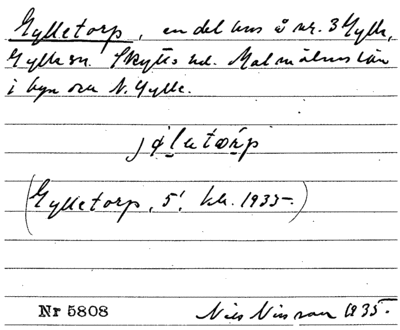 Gylletorp, en del hus å nr. 3 Gylle,
Gylle sn. Skytts hd. Malmöhus län
i byn N. Gylle.
(Gylletorp, 5! kh. 1935.)
Nr 5808 Nils Nilsson 1935.